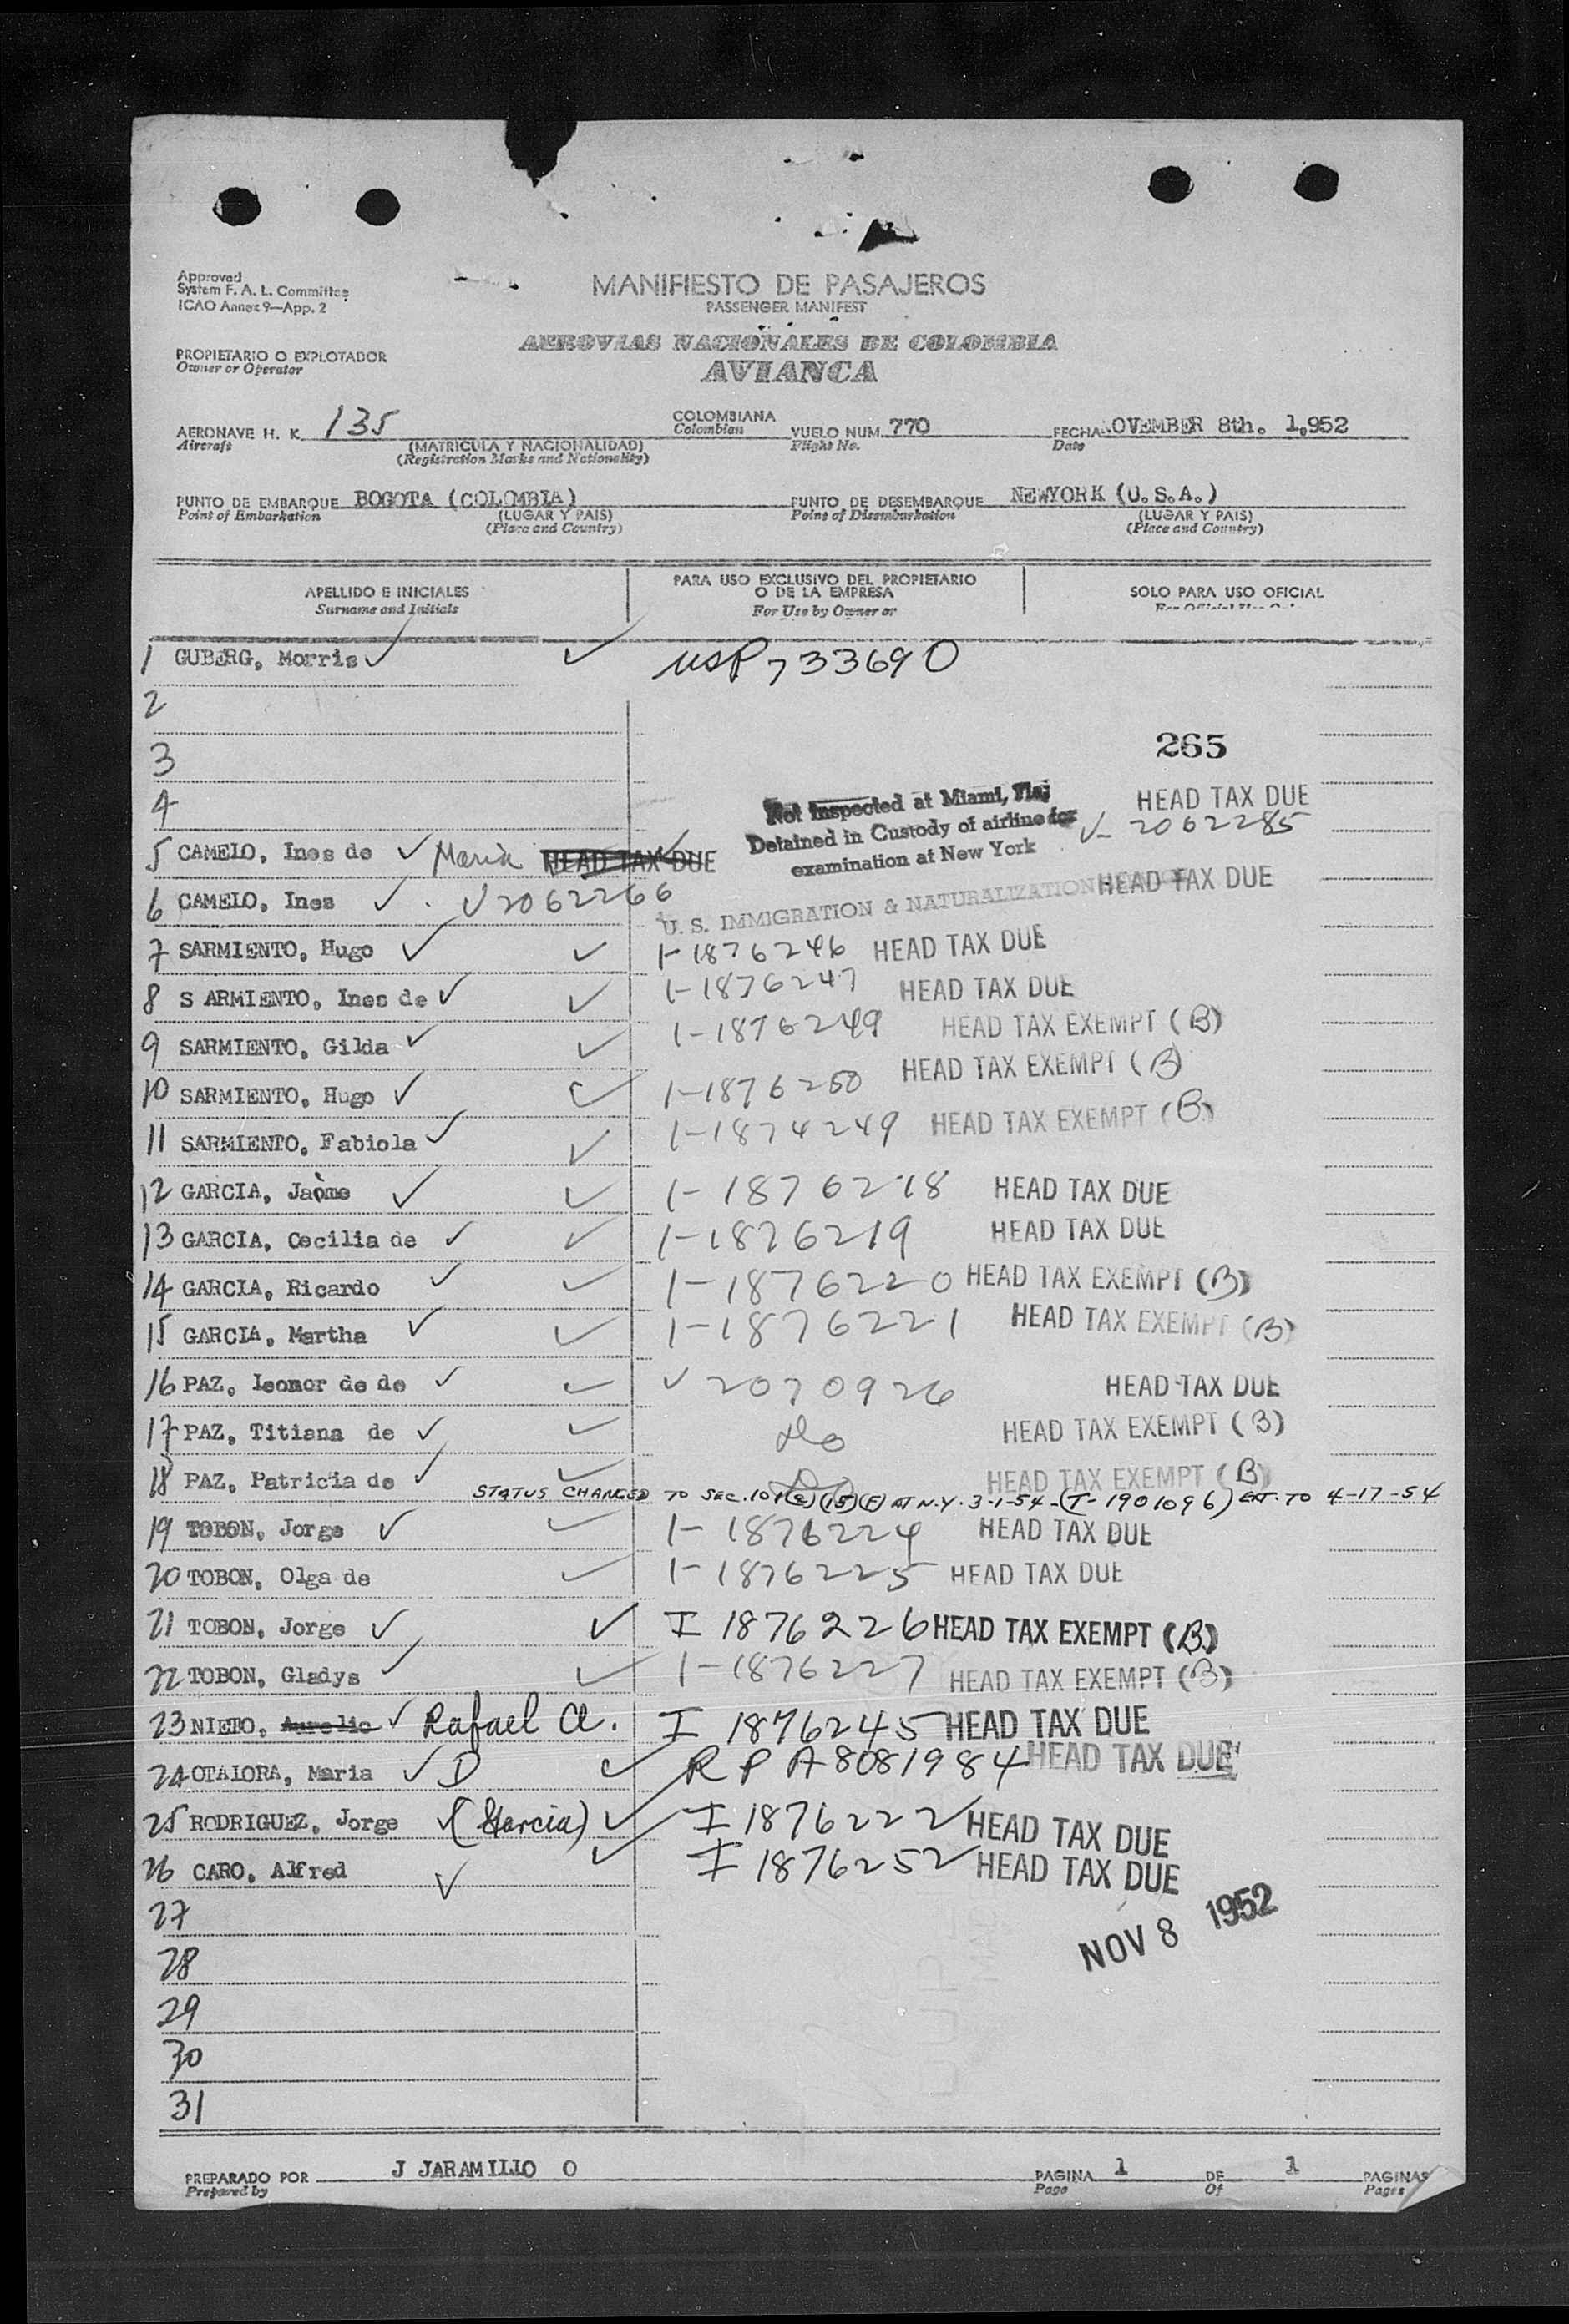 Approved
System F. A. L. Committee
ICAO Annex 9—App. 2
MANIFIESTO DE PASAJEROS
PASSENGER MANIFEST
AEROVIAS NACIONALES DE COLOMBIA
AVIANCA
PROPIETARIO O EXPLOTADOR
Owner or Operator
AERONAVE H. K. 135 COLOMBIANA VUELO NUM. 770 FECHA NOVEMBER 8th. 1,952
Aircraft (MATRICULA Y NACIONALIDAD) Colombian Flight No. Date
(Registration Marks and Nationality)
PUNTO DE EMBARQUE BOGOTA (COLOMBIA) PUNTO DE DESEMBARQUE NEWYORK (U.S.A.)
Point of Embarkation (LUGAR Y PAIS) Point of Disembarkation (LUGAR Y PAIS)
(Place and Country) (Place and Country)
APELLIDO E INICIALES PARA USO EXCLUSIVO DEL PROPIETARIO SOLO PARA USO OFICIAL
O DE LA EMPRESA
Surname and Initials For Use by Owner or For Official Use Only
1 GUBERG, Morris ✓ ✓ USP 733690
2
3 265
4 Not Inspected at Miami, Fla; HEAD TAX DUE
Detained in Custody of airline for V- 2062285
examination at New York
5 CAMELO, Ines de ✓ Maria HEAD TAX DUE
6 CAMELO, Ines ✓ V2062266 HEAD TAX DUE
U. S. IMMIGRATION & NATURALIZATION
7 SARMIENTO, Hugo ✓ ✓ I-1876246 HEAD TAX DUE
8 S ARMIENTO, Ines de ✓ ✓ I-1876247 HEAD TAX DUE
9 SARMIENTO, Gilda ✓ ✓ I-1876249 HEAD TAX EXEMPT (B)
10 SARMIENTO, Hugo ✓ ✓ I-1876250 HEAD TAX EXEMPT (B)
11 SARMIENTO, Fabiola ✓ ✓ I-1874249 HEAD TAX EXEMPT (B)
12 GARCIA, Jaime ✓ ✓ I-1876218 HEAD TAX DUE
13 GARCIA, Cecilia de ✓ ✓ I-1876219 HEAD TAX DUE
14 GARCIA, Ricardo ✓ ✓ I-1876220 HEAD TAX EXEMPT (B)
15 GARCIA, Martha ✓ ✓ I-1876221 HEAD TAX EXEMPT (B)
16 PAZ, Leonor de de ✓ ✓ V 2070926 HEAD TAX DUE
17 PAZ, Titiana de ✓ ✓ Do HEAD TAX EXEMPT (B)
18 PAZ, Patricia de ✓ ✓ Do HEAD TAX EXEMPT (B)
STATUS CHANGED TO SEC. 101(a)(15)(F) AT N.Y. 3-1-54 - (T-1901096) EXT. TO 4-17-54
19 TOBON, Jorge ✓ ✓ I-1876224 HEAD TAX DUE
20 TOBON, Olga de ✓ I-1876225 HEAD TAX DUE
21 TOBON, Jorge ✓ ✓ I 1876226 HEAD TAX EXEMPT (B)
22 TOBON, Gladys ✓ ✓ I-1876227 HEAD TAX EXEMPT (B)
23 NIETO, Aurelio ✓ Rafael A. I 1876245 HEAD TAX DUE
24 OTALORA, Maria ✓ D ✓ R P A8081984 HEAD TAX DUE
25 RODRIGUEZ, Jorge ✓ (Garcia) ✓ I 1876222 HEAD TAX DUE
26 CARO, Alfred ✓ ✓ I 1876252 HEAD TAX DUE
27
NOV 8 1952
28
29
30
31
PREPARADO POR J JARAMILLO O PAGINA 1 DE 1 PAGINAS
Prepared by Page Of Pages